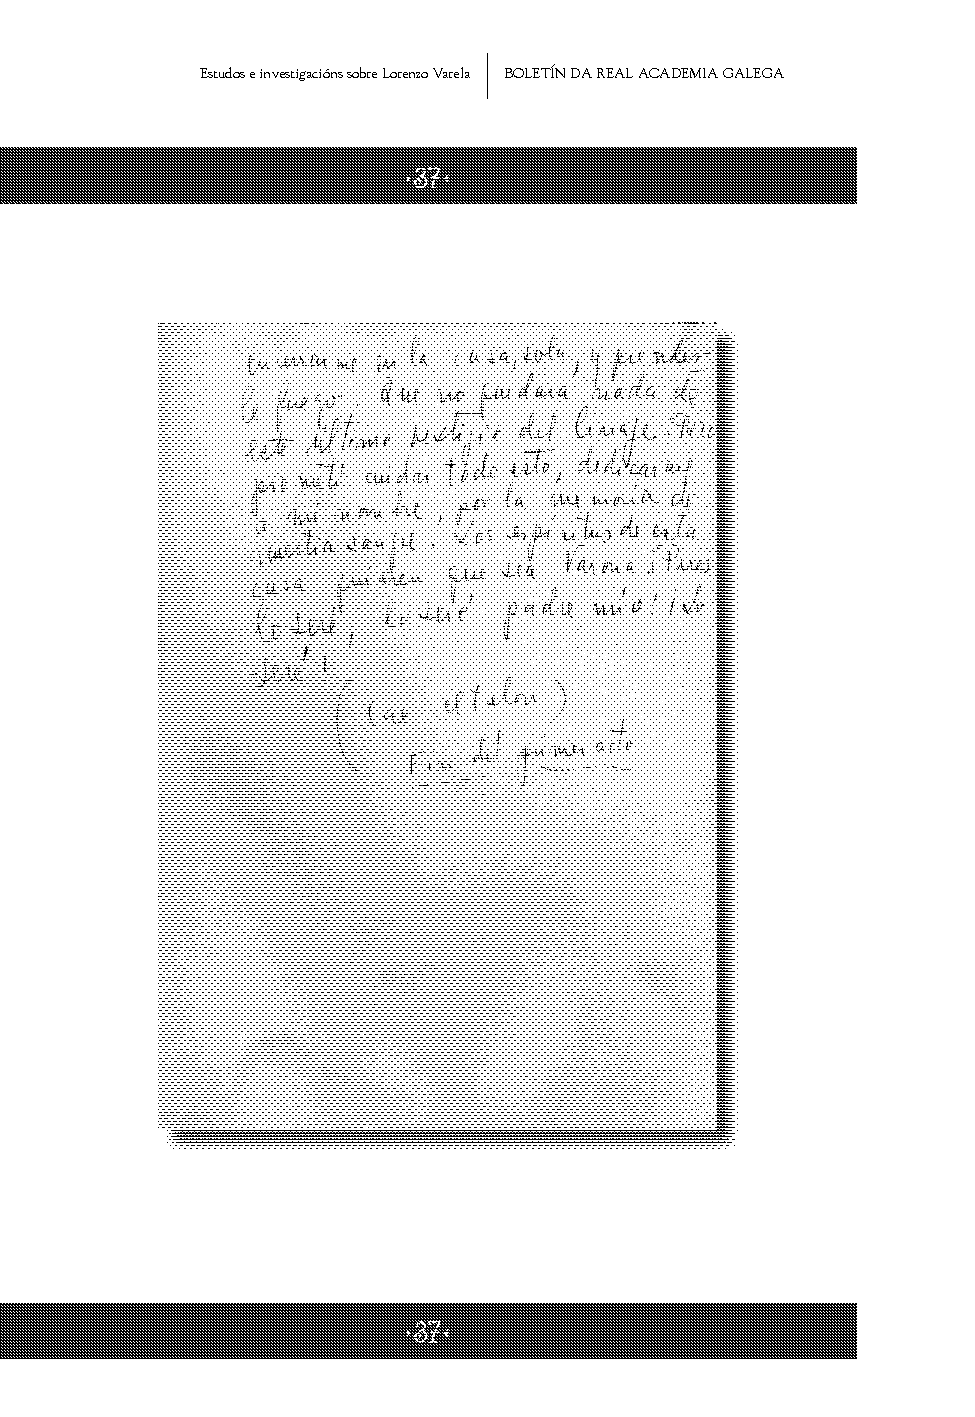 Estudos e investigacións sobre Lorenzo Varela
BOLETÍN DA REAL ACADEMIA GALEGA
·37·
en la casa, sola, y
fuego. Que no quedara nada de
este último vestigio del linaje. Pero
prometí cuidar todo esto, dedicarme
a mi nombre, por la memoria de
nuestra sangre. Los espíritus de esta
casa quieren que sea varona. Pues
lo seré, lo seré padre mío! ¡Lo
seré!
(Cae el telon)
Fin del primer acto
·37·